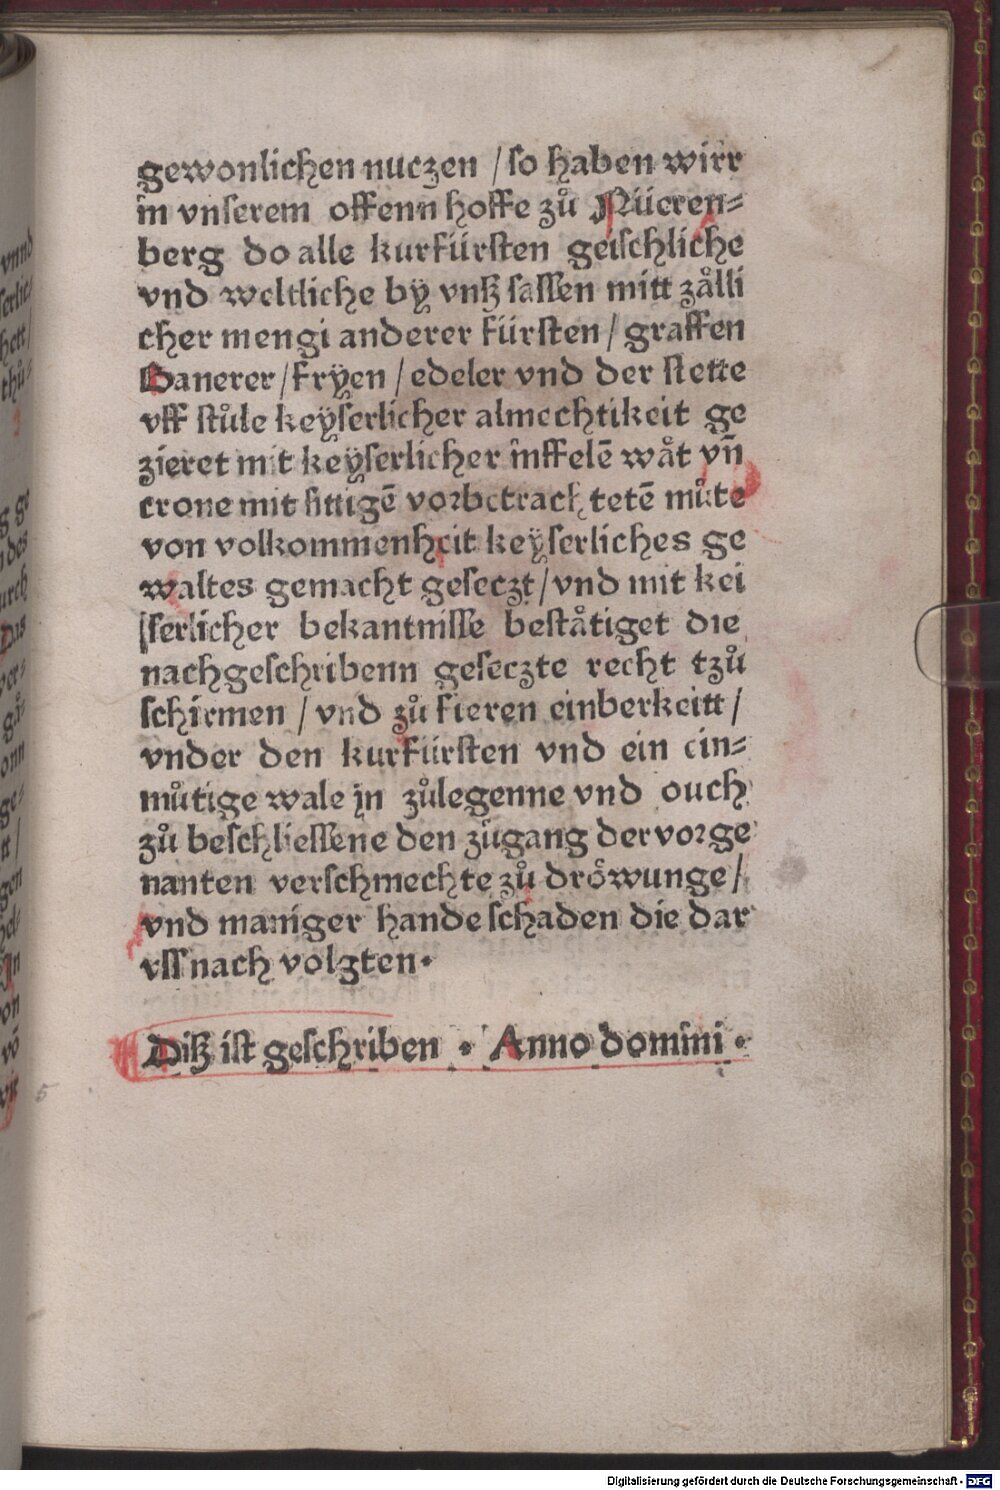 gewonlichen nuczen /so haben wirr
in vnserem offenn hoffe zů Nüeren-
berg do alle kurfürsten geischliche
vnd weltliche bÿ vnß sassen mitt zålli
cher mengi anderer fürsten/ graffen
Banerer/frÿen/edeler vnd der stette
vff stůle keÿserlicher almechtikeit ge
zieret mit keÿserlicher inffelē wåt vn̄
crone mit sittigē vorbetrachtetē můte
von volkommenheit keÿserliches ge
waltes gemacht geseczt/vnd mit kei
serlicher bekantnisse beståtiget die
nachgeschribenn geseczte recht tzů
schirmen /vnd zů fieren einberkeitt/
vnder den kurfürsten vnd ein ein-
můtige wale jn zůlegenne vnd ouch
zů beschliessene den zůgang der vorge
nanten verschmechte zů dröwunge/
vnd maniger hande schaden die dar
vss nach volgten.
Diß ist geschriben . Anno domini .
5
Digitalisierung gefördert durch die Deutsche Forschungsgemeinschaft - DFG